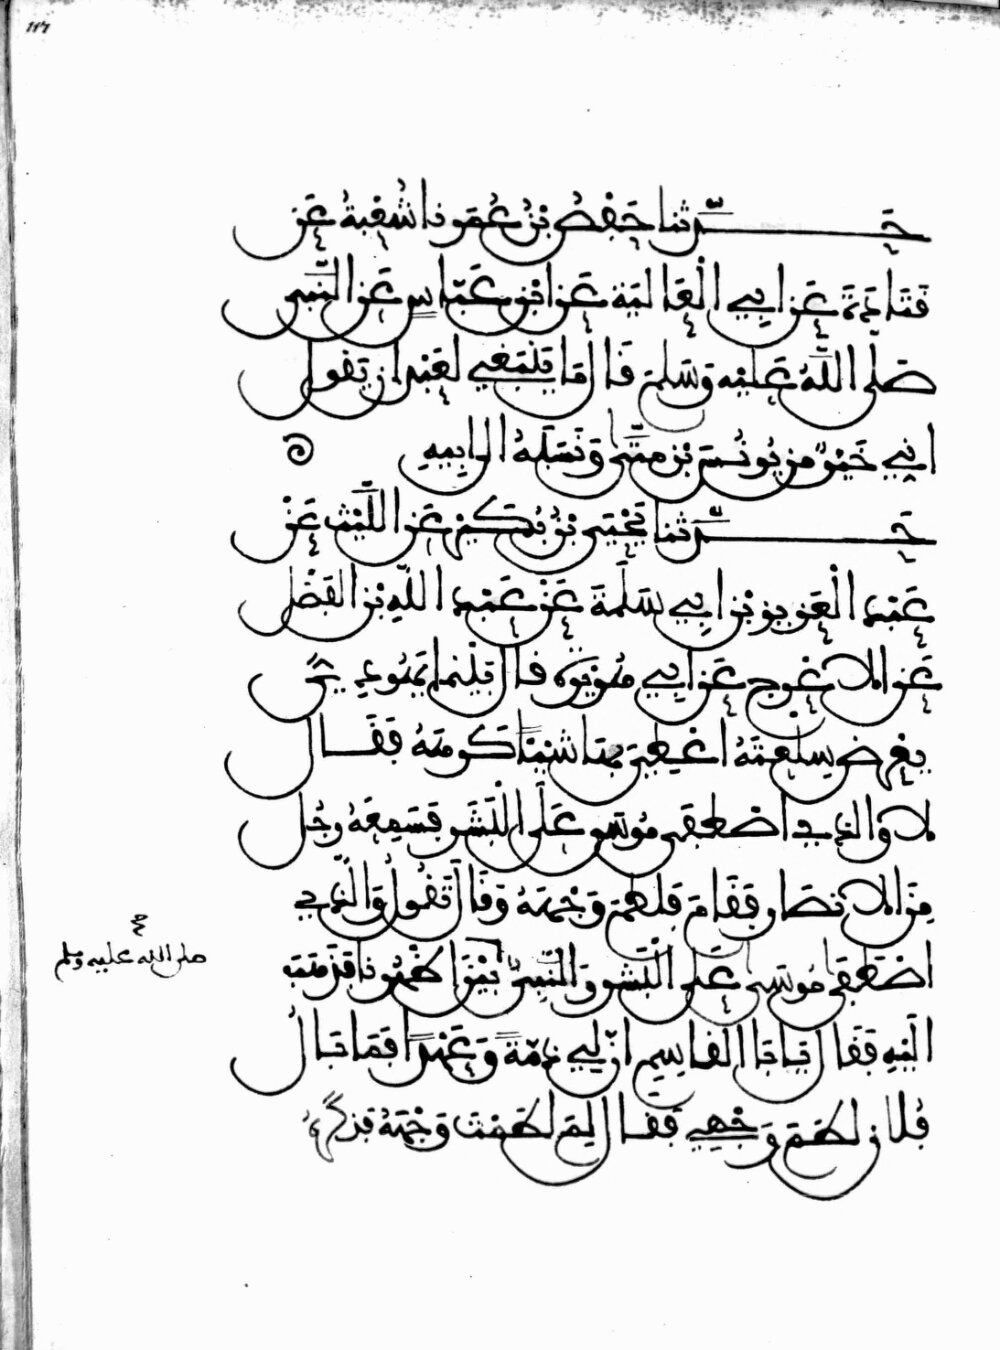 حَدَّثنا حَفْصُ بْنُ عُمَرَ نا شُعْبَةُ عَن
قَتَادَةَ عَن ابِي الْعَالِيَةِ عَن ابْنِ عَبَّاسٍ عَنِ النَّبِيِّ
صَلَّى اللَّهُ عَلَيْهِ وَسَلَّمَ قَالَ مَا يَنْبَغِي لِعَبْدٍ ان يَقُولَ
انِّي خَيْرٌ مِن يُونُسَ بْنِ مَتَّى وَنَسَبَهُ الى ابِيهِ
حَدَّثنا يَحْيَى بْنُ بُكَيْرٍ عَنِ اللَّيْثِ عَنْ
عَبْدِ الْعَزِيزِ بْنِ ابِي سَلَمَةَ عَنْ عَبْدِ اللَّهِ بْنِ الفَضْلِ
عَنِ الاعْرَجِ عَن ابِي هُرَيْرَةَ قالَ بَيْنَما يَهُودِيٌّ
يَعْرِضُ سِلْعَتَهُ اعْطِيَ بِهَا شَيْئًا كَرِهَهُ فَقَالَ
لا وَالَّذِي اصْطَفَى مُوسَى عَلَى الْبَشَرِ فَسَمِعَهُ رَجُلٌ
مِنَ الانْصَارِ فَقَامَ فَلَطَمَ وَجْهَهُ وَقَالَ تَقُولُ وَالَّذِي
اصْطَفَى مُوسَى عَلَى الْبَشَرِ وَالنَّبِيُّ بَيْنَ اظْهُرِنَا فَذَهَبَ
صلى الله عليه وسلم
الَيْهِ فَقَالَ يَابَا الْقَاسِمِ انَّ لِي ذِمَّةً وَعَهْدًا فَمَا بَالُ
فُلانٍ لَطَمَ وَجْهِي فَقَالَ لِمَ لَطَمْتَ وَجْهَهُ فَذَكَرَهُ